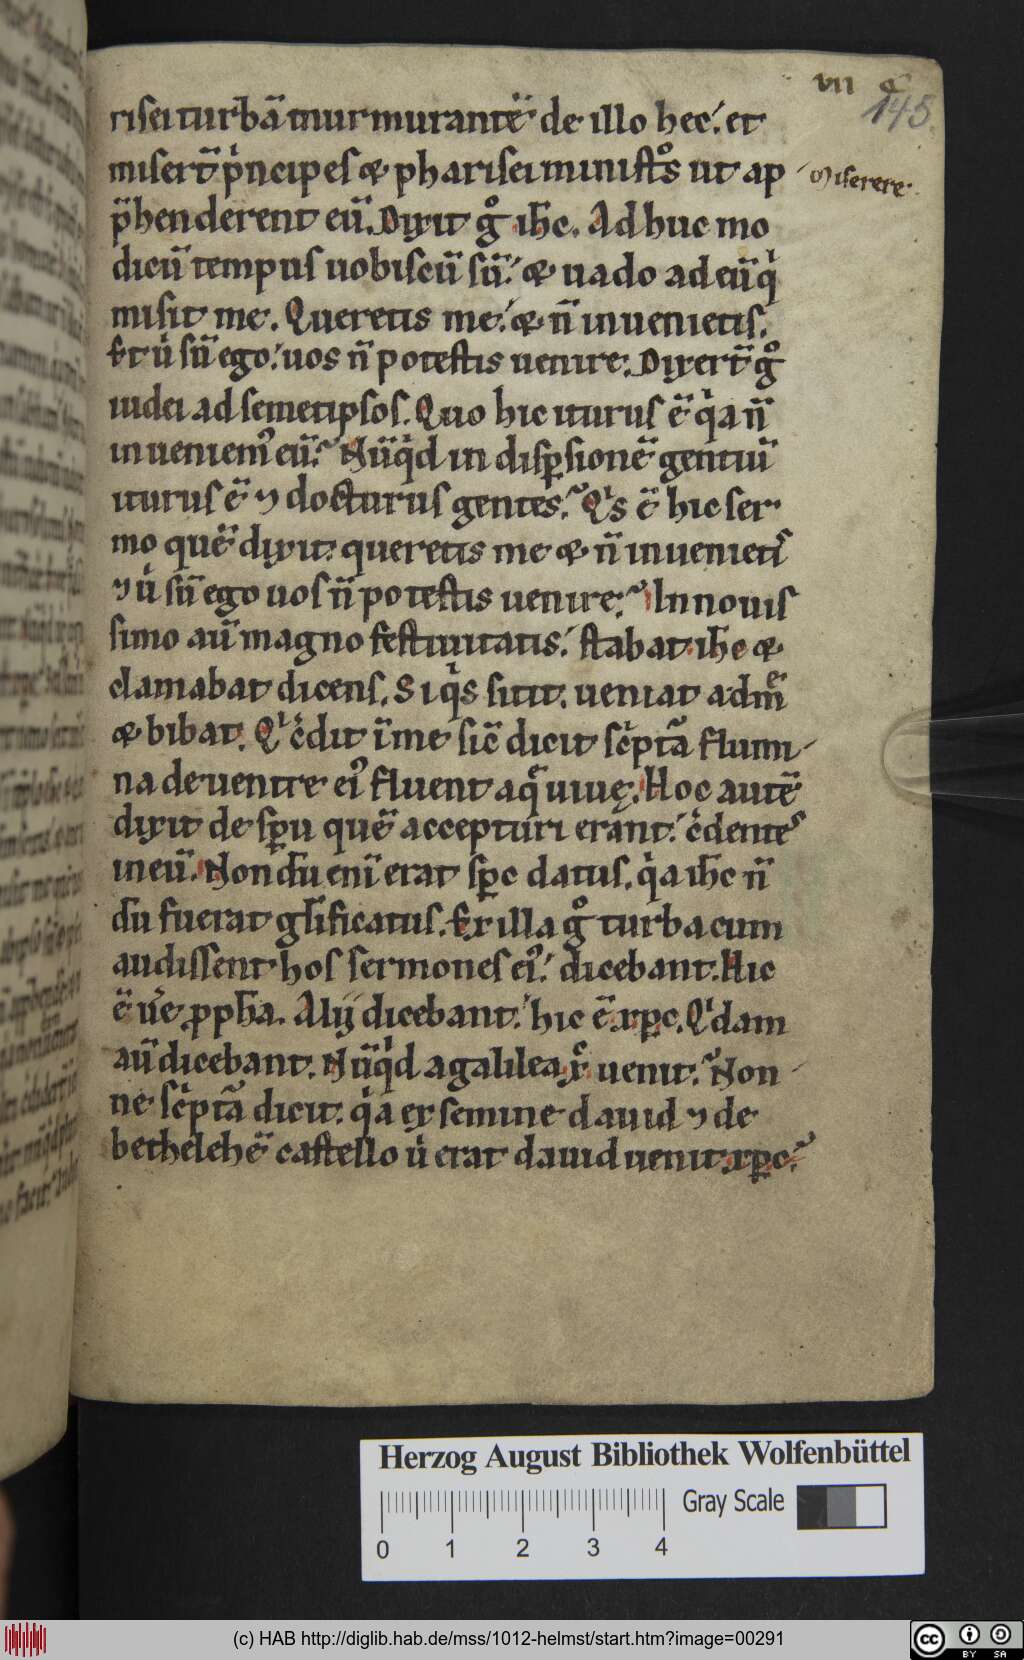 vii c
145
risei turbā murmurantē de illo hec. et
misert̄ pͥncipes & pharisei ministͦs ut ap
Miserere.
p̄henderent eū. Dixit gͦ ih̄c. Adhuc mo
dicū tempus uobiscū sū. & uado ad eū qͥ
misit me. Queretis me. & n̄ inuenietis.
Et uͥ sū ego. uos n̄ potestis uenire. Dixert̄ gͦ
iudei ad semetipsos. Quo hic iturus ē qͥa n̄
inueniemꝰ eū. Nūqͥd in disꝑsionē gentiū
iturus ē ⁊ docturus gentes. Qͥs ē hic ser
mo quē dixit. queretis me & n̄ inuenietis
⁊ uͥ sū ego uos n̄ potestis uenire. In nouis
simo aū magno festiuitatis. stabat ih̄c &
clamabat dicens. Siqͥs sitit. ueniat ad me
& bibat. Qͥ cͥdit ī me sic̄ dicit scͥptā flumi
na de uentre eiꝰ fluent aqͤ uiuę. Hoc autē
dixit de sp̄u quē accepturi erant. cͥdentes
in eū. Nondū enī erat sp̄c datus. qͥa ih̄c n̄
dū fuerat gl̄ificatus. Ex illa gͦ turba cum
audissent hos sermones eiꝰ. dicebant. Hic
ē ue᷒e ꝓph̄a. Alij dicebant. hic ē xp̄c. Qͥdam
aū dicebant. Nūqͥd a galilea xp̄c uenit. Non
ne scͥptā dicit. qͥa ex semine dauid ⁊ de
bethelehē castello uͥ erat dauid uenit xp̄c.
Herzog August Bibliothek Wolfenbüttel
Gray Scale
0 1 2 3 4
(c) HAB http://diglib.hab.de/mss/1012-helmst/start.htm?image=00291
cc BY SA